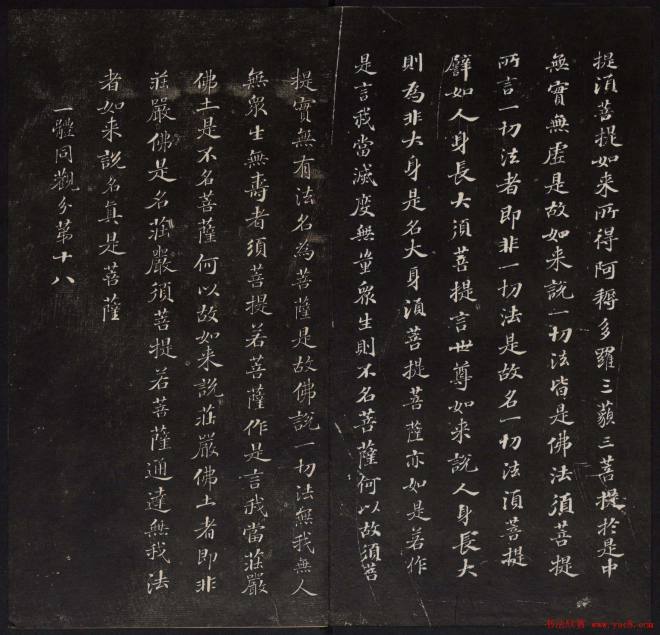 提須菩提如来所得阿耨多羅三藐三菩提於是中
無實無虛是故如来說一切法皆是佛法須菩提
所言一切法者即非一切法是故名一切法須菩提
譬如人身長大須菩提言世尊如来說人身長大
則為非大身是名大身須菩提菩薩亦如是若作
是言我當滅度無量眾生則不名菩薩何以故須菩
提實無有法名為菩薩是故佛說一切法無我無人
無眾生無壽者須菩提若菩薩作是言我當莊嚴
佛土是不名菩薩何以故如来說莊嚴佛土者即非
莊嚴佛是名莊嚴須菩提若菩薩通達無我法
者如来說名真是菩薩
一體同觀分第十八
书法欣赏 www.yac8.com